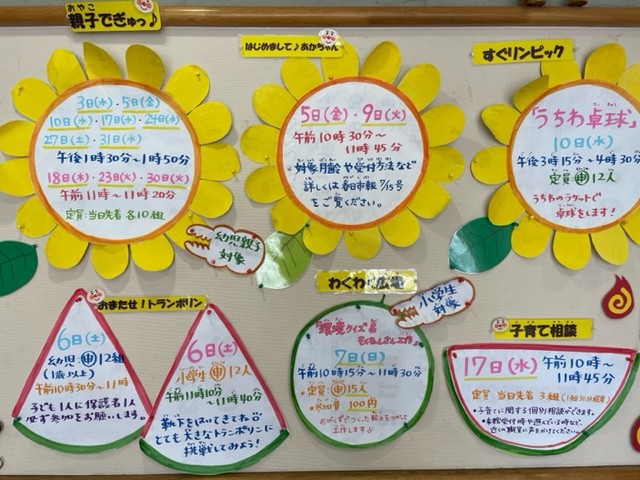 おやこ
親子でぎゅっ♪
3日(水)・5日(金)
10日(水)・17日(水)・24日(水)
27日(土)・31日(水)
午後1時30分〜1時50分
18日(木)・23日(火)・30日(火)
午前11時〜11時20分
定員:当日先着 各10組
幼児親子
対象
はじめまして♪あかちゃん
5日(金)・9日(火)
午前10時30分〜
11時45分
※対象月齢や受付方法など
詳しくは春日市報7/15号
をご覧ください。
すぐリンピック
「うちわ卓球」
10日(水)
午後3時15分〜4時30分
定員 申 12人
うちわのラケットで
卓球をします!
おまたせ!トランポリン
6日(土)
幼児:申12組
(1歳以上)
午前10時30分〜11時
子ども1人に保護者1人
必ず参加をお願いします。
6日(土)
小学生 申12人
午前11時10分
〜11時40分
靴下をはいてきてね
とても大きなトランポリンに
挑戦してみよう!
わくわく広場
小学生
対象
環境クイズ&
7日(日)
午前10時15分〜11時30分
・定員:申15人
・参加費:100円
工作します♪
子育て相談
17日(水) 午前10時〜
11時45分
定員:当日先着 3組(1組30分程度)
・子育てに関する個別相談ができます。
・来館受付時や遊んでいる時など、
近くの職員に声をかけてください。